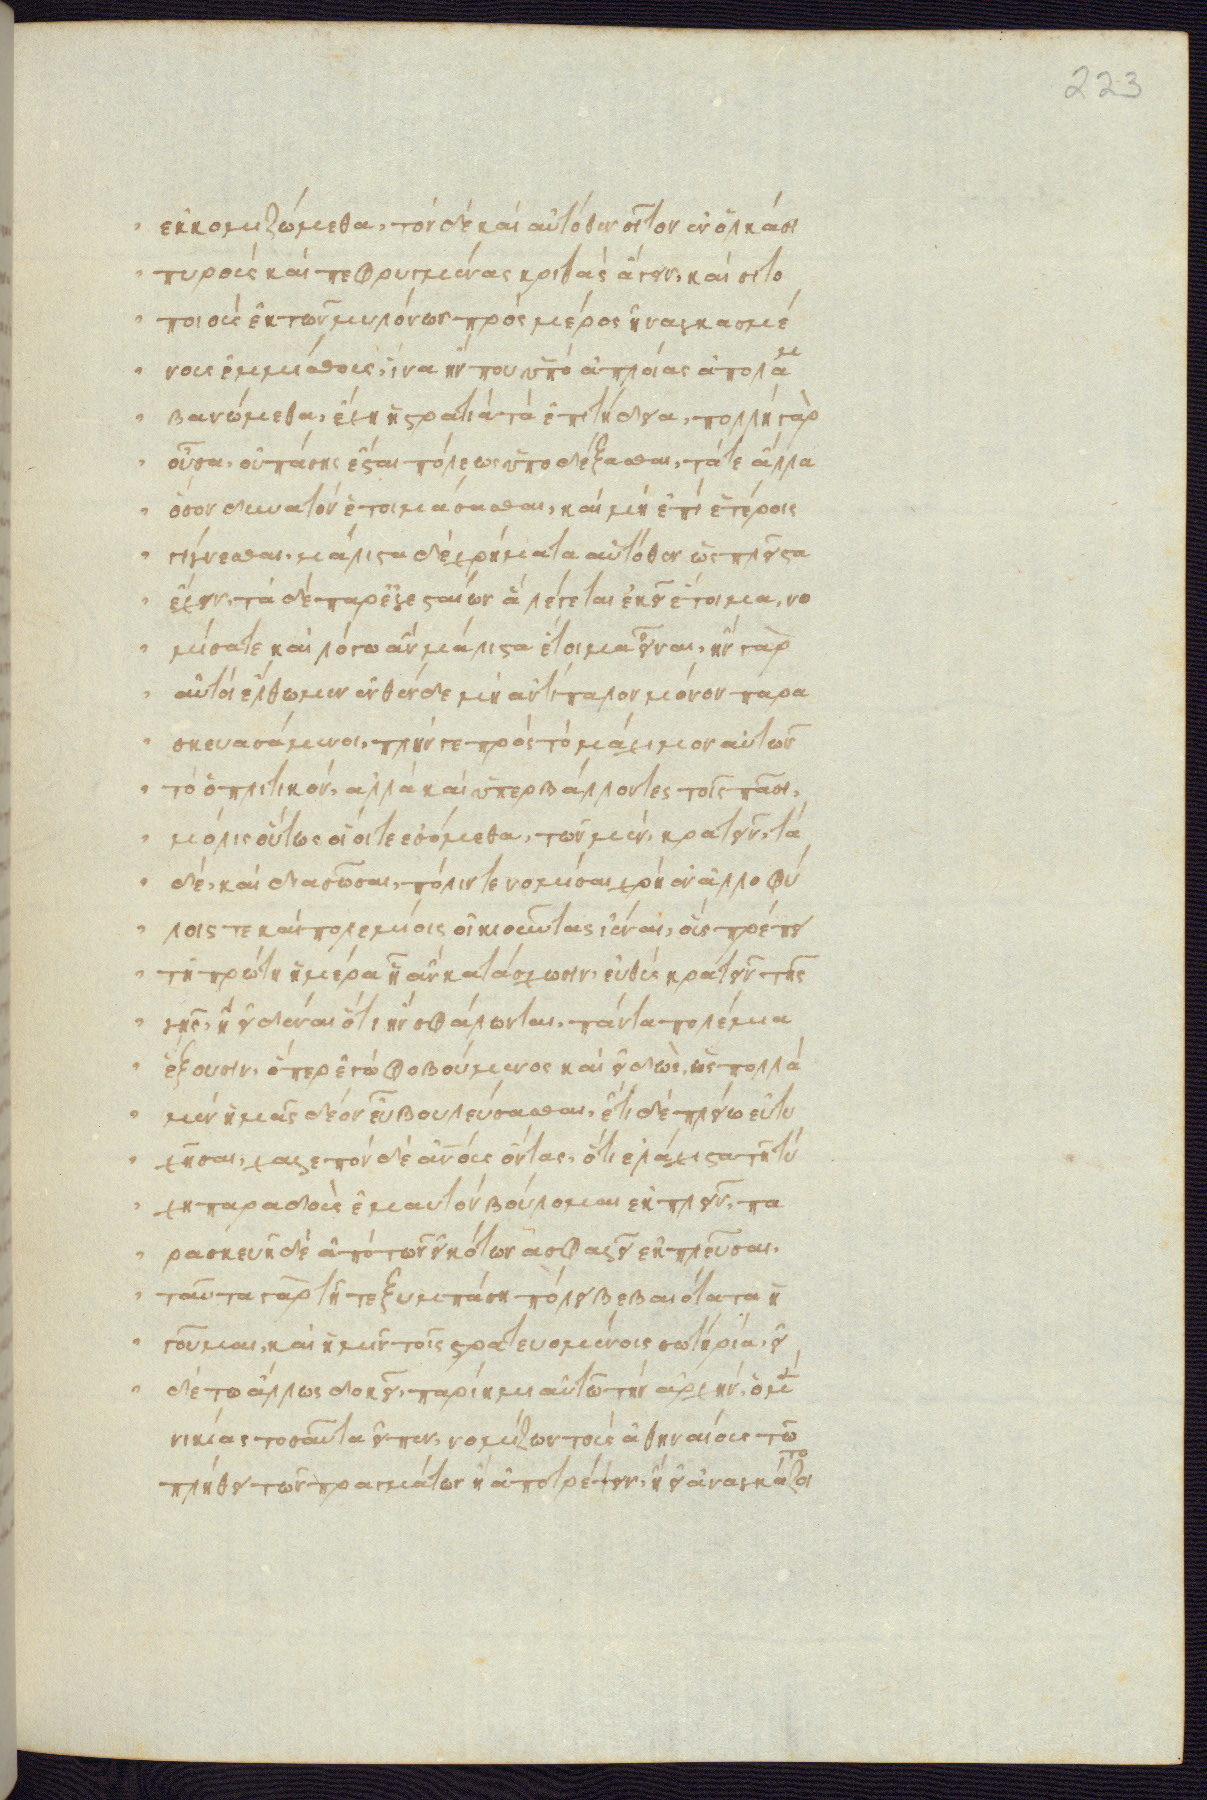 223
εκκομιζώμεθα, τόν δέ καί αὐτόθεν σῖτον ἐν ὁλκάσι
πυρούς καί πεφρυγμένας κριθάς ἄγειν, καί σιτο
ποιούς ἐκ τῶν μυλόνων πρός μέρος ἠναγκασμέ
νους ἐμμίσθους, ἵνα ἤν που ὑπό ἀπλοίας ἀπολαμ
βανώμεθα, ἔχη ἡ στρατιά τά ἐπιτήδεια, πολλή γὰρ
οὖσα, οὐ πάσης ἔσται πόλεως ὑποδέξασθαι, τάτε ἄλλα
ὅσον δυνατόν ἑτοιμάσασθαι, καί μή ἐπί ἑτέροις
γίγνεσθαι, μάλιστα δέ χρήματα αὐτόθεν ὡς πλεῖστα
ἔχειν, τά δέ παρ' ἐγεσταίων ἅ λέγεται ἐκεῖ ἕτοιμα, νο
μίσατε καί λόγω ἄν μάλιστα ἕτοιμα εἶναι, ἤν γὰρ
αὐτοί ἔλθωμεν ἐνθένδε μή ἀντίπαλον μόνον παρα
σκευασάμενοι, πλήν γε πρός τό μάχιμον αὐτῶν
τό ὁπλιτικόν, αλλά καί ὑπερβάλλοντες τοῖς πᾶσι,
μόλις οὕτως οἷοίτε εσόμεθα, τῶν μέν, κρατεῖν, τά
δέ, καί διασῶσαι, πόλιν τε νομίσαι χρή ἐν ἀλλοφύ
λοις τε καί πολεμίοις οἰκιοῦντας ἰέναι, οὕς πρέπει
τῇ πρώτη ἡμέρα ᾗ ἄν κατάσχωσιν, εὐθύς κρατεῖν τῆς
γῆς, ἤ εἰδέναι ὅτι ἤν σφάλωνται, πάντα πολέμια
ἕξουσιν, ὅπερ ἐγώ φοβούμενος καί εἰδώς, ὡς πολλά
μέν ἡμᾶς δέον εὖ βουλεύσασθαι, ἔτι δέ πλείω εὐτυ
χῆσαι, χαλεπόν δέ ἀνούς ὄντας, ὅτι ἐλάχιστα τῇ τύ
χη παραδούς ἐμαυτόν βούλομαι ἐκπλεῖν, πα
ρασκευῆ δέ ἀπό τῶν εἰκότων ἀσφαλεῖ ἐκπλεῦσαι.
ταῦτα γὰρ τῆ τε ξυμπάση πόλει βεβαιότατα ἡ
γοῦμαι, καί ἡμῖν τοῖς στρατευσομένοις σωτήρια, εἰ
δέ τω ἄλλως δοκεῖ, παρίημι αὐτῶ τήν ἀρχήν, ὁ μέν
νικίας τοσαῦτα εἶπεν, νομίζων τούς ἀθηναίους τῶ
πλήθει τῶν πραγμάτων ἤ ἀποτρέψειν, ἤ εἰ ἀναγκάζοι
το